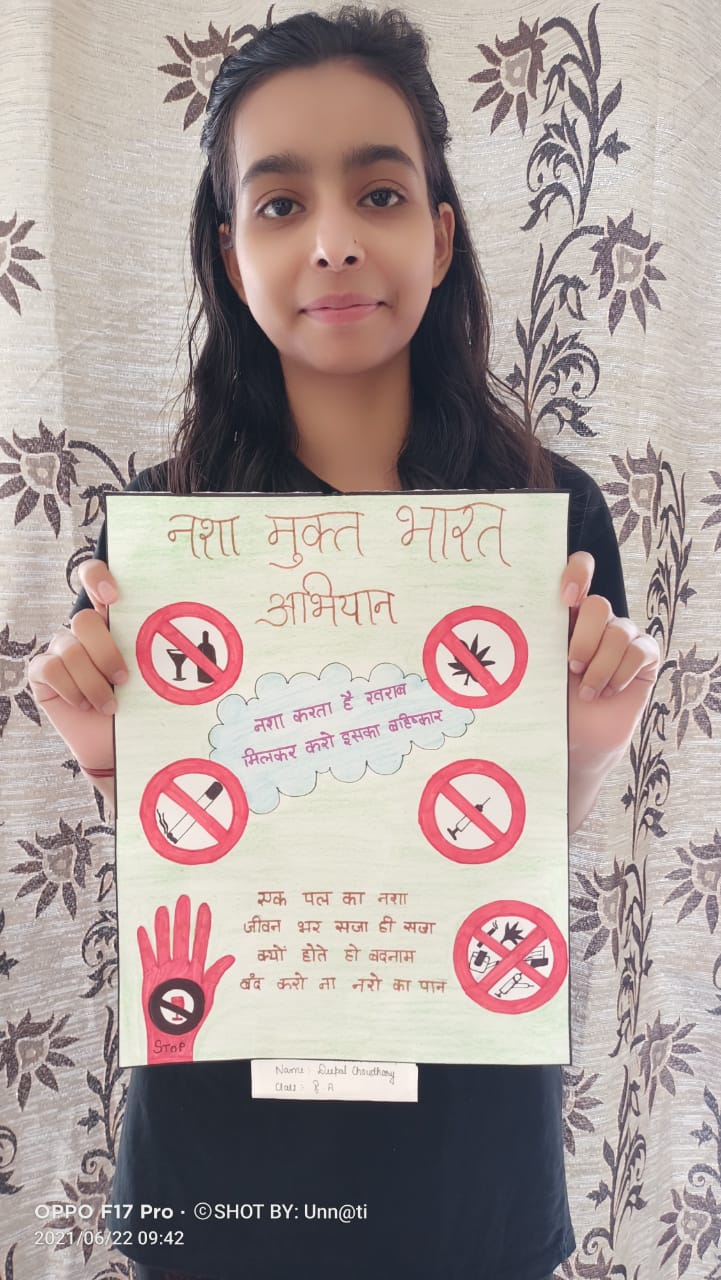 नशा मुक्त भारत
अभियान
नशा करता है खराब
मिलकर करो इसका बहिष्कार
एक पल का नशा
जीवन भर सजा ही सजा
क्यों होते हो बदनाम
बंद करो ना नशे का पान
STOP
Name: Deepal Choudhary
Class: 8-A
OPPO F17 Pro · ©SHOT BY: Unn@ti
2021/06/22 09:42